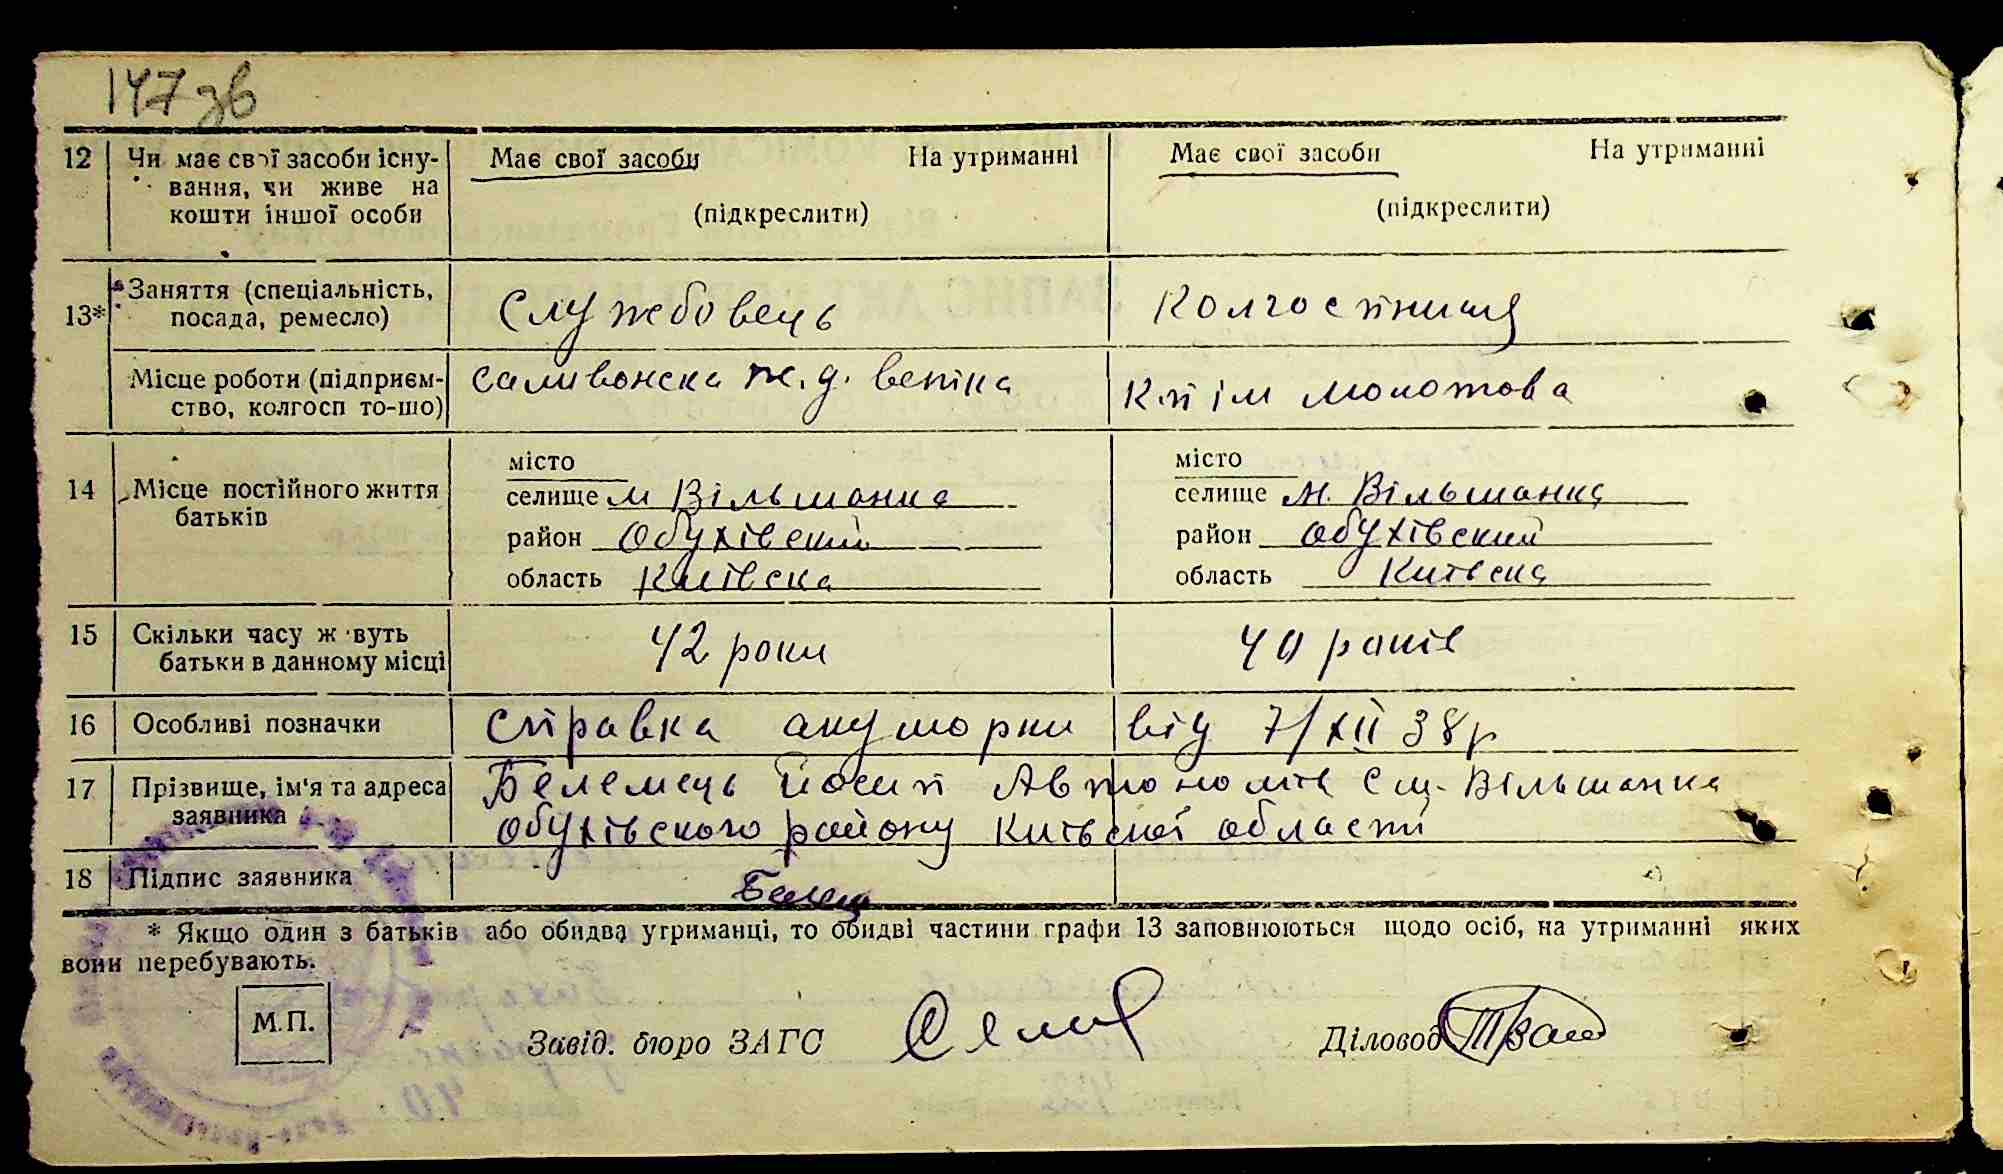 147 зв
12 Чи має свої засоби існу- Має свої засоби На утриманні Має свої засоби На утриманні
вання, чи живе на
кошти іншої особи (підкреслити) (підкреслити)
13* Заняття (спеціальність, Службовець Колгоспниця
посада, ремесло)
Місце роботи (підприєм- Саливонска ж. д. ветка К-п ім Молотова
ство, колгосп то-що)
місто місто
14 Місце постійного життя селище м Вільшанка селище М. Вільшанка
батьків район Обухівский район Обухівский
область Київска область Київска
15 Скільки часу ж вуть 42 роки 40 років
батьки в данному місці
16 Особливі позначки Справка акушорки від 7/XII 38р
17 Прізвище, ім'я та адреса Белемець Йосип Автономів С м. Вільшанка
заявника Обухівского району Київскої області
18 Підпис заявника Белец
* Якщо один з батьків або обидва утриманці, то обидві частини графи 13 заповнюються щодо осіб, на утриманні яких
вони перебувають.
М.П. Завід. бюро ЗАГС Діловод